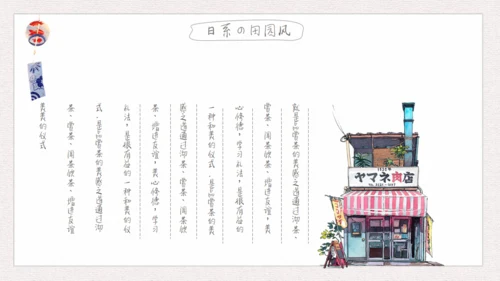 日系の田园风
就是品尝茶的美感之道通过沏茶、
赏茶、闻茶饮茶、增进友谊，美
心修德，学习礼法，是很有益的
一种和美的仪式.是品尝茶的美
感之道通过沏茶、赏茶、闻茶饮
茶、增进友谊，美心修德，学习
礼法，是很有益的一种和美的仪
式.是品尝茶的美感之道通过沏
茶、赏茶、闻茶饮茶、增进友谊
美美的仪式
ヤマネ肉店